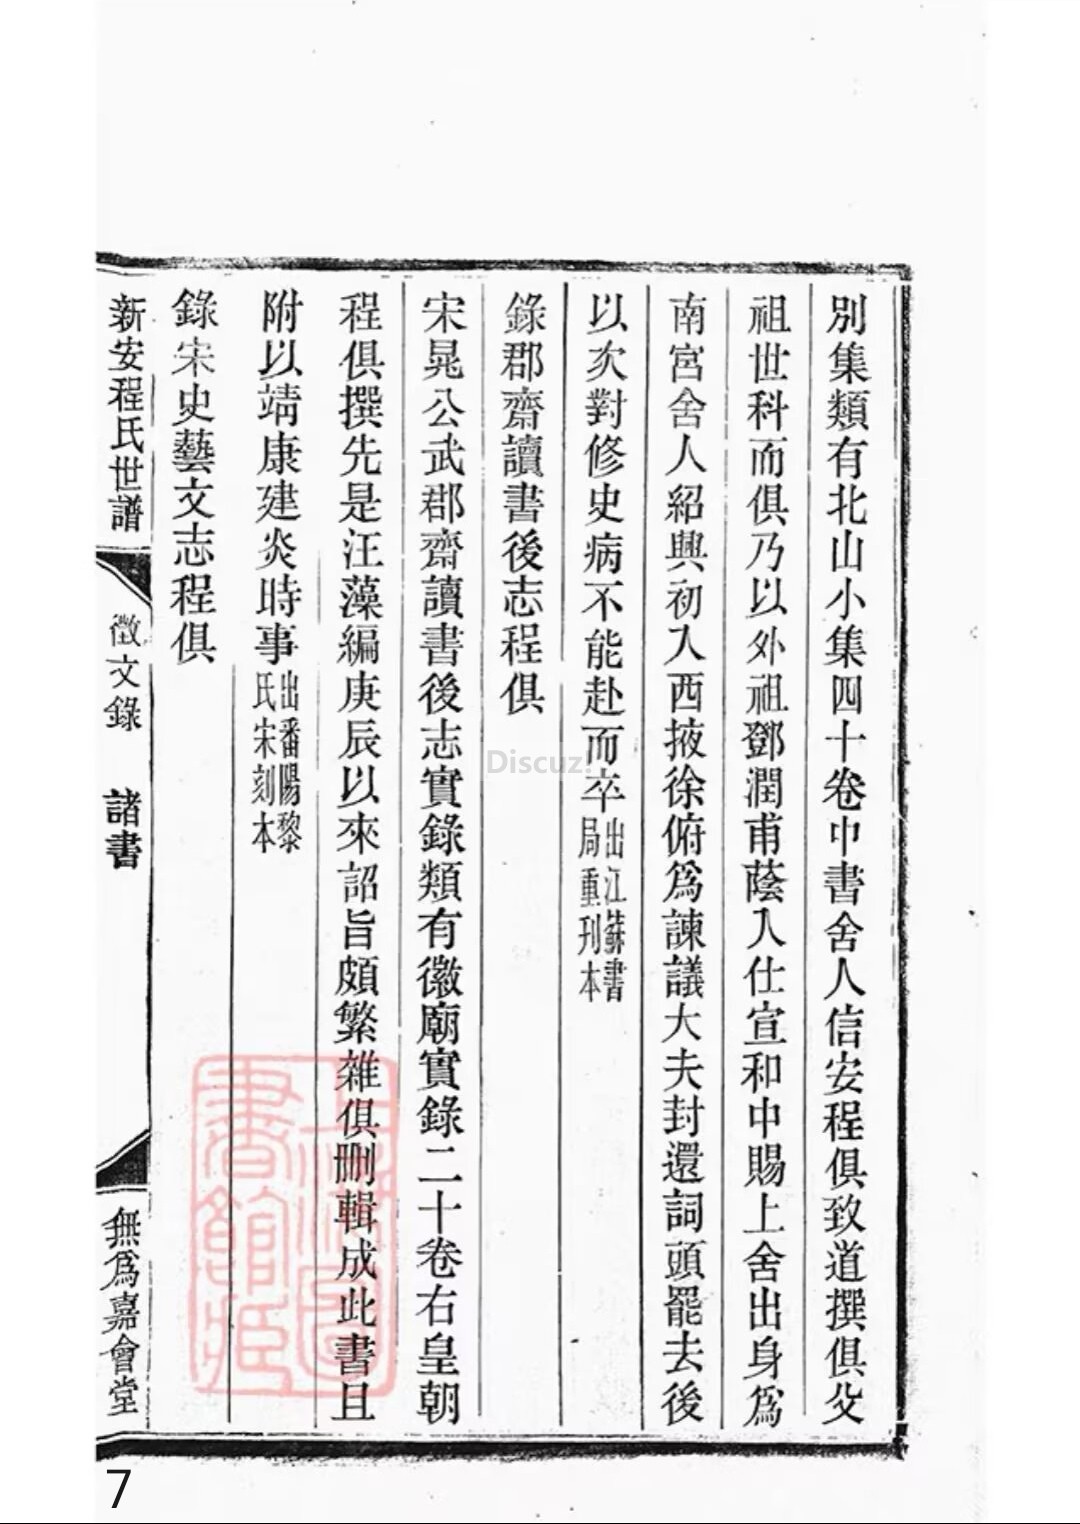 別集類有北山小集四十卷中書舍人信安程俱致道撰俱父
祖世科而俱乃以外祖鄧潤甫蔭入仕宣和中賜上舍出身為
南宮舍人紹興初入西掖徐俯為諫議大夫封還詞頭罷去後
以次對修史病不能赴而卒出江蘇書局重刊本
錄郡齋讀書後志程俱
宋晁公武郡齋讀書後志實錄類有徽廟實錄二十卷右皇朝
程俱撰先是汪藻編庚辰以來詔旨頗繁雜俱刪輯成此書且
附以靖康建炎時事出番陽黎氏宋刻本
錄宋史藝文志程俱
新安程氏世譜 徵文錄 諸書 無為嘉會堂
上海圖書館藏
Discuz!
7